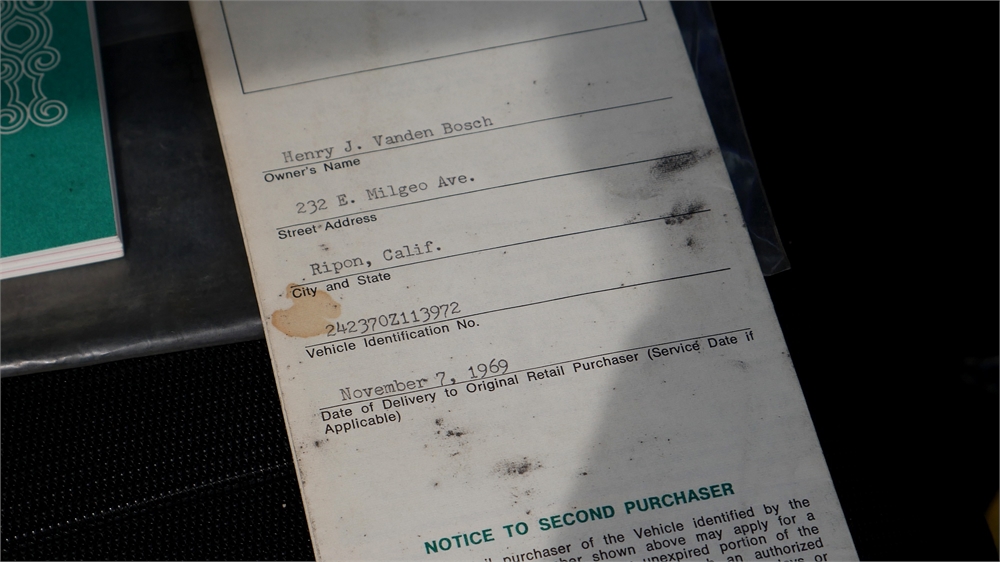 Henry J. Vanden Bosch
Owner's Name
232 E. Milgeo Ave.
Street Address
Ripon, Calif.
City and State
242370Z113972
Vehicle Identification No.
November 7, 1969
Date of Delivery to Original Retail Purchaser (Service Date if
Applicable)
NOTICE TO SECOND PURCHASER
purchaser of the Vehicle identified by the
shown above may apply for a
unexpired portion of the
an authorized
or